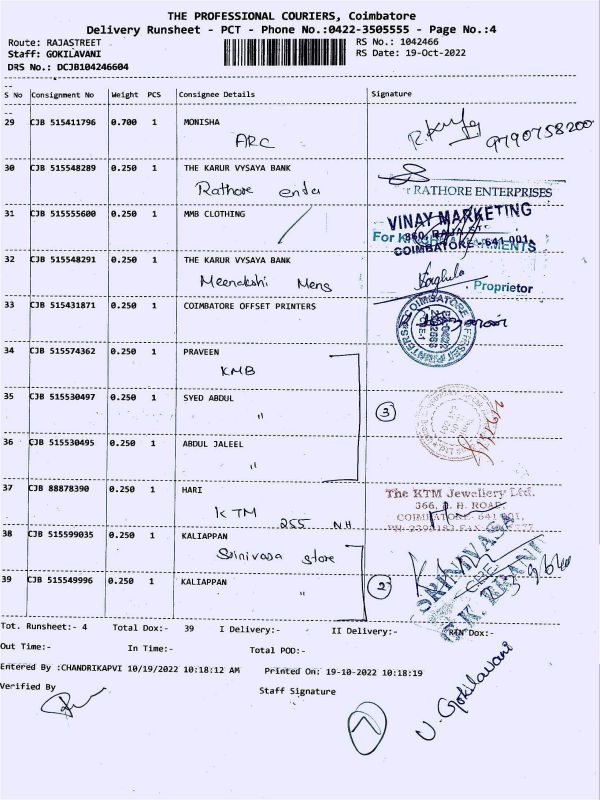 THE PROFESSIONAL COURIERS, Coimbatore
Delivery Runsheet - PCT - Phone No.:0422-3505555 - Page No.:4
Route: RAJASTREET RS No.: 1042466
Staff: GOKILAVANI RS Date: 19-Oct-2022
DRS No.: DCJB104246604
S No Consignment No Weight PCS Consignee Details Signature
29 CJB 515411796 0.700 1 MONISHA
ARC 9790758200
30 CJB 515548289 0.250 1 THE KARUR VYSAYA BANK
Rathore enter RATHORE ENTERPRISES
31 CJB 515555600 0.250 1 MMB CLOTHING VINAY MARKETING
COIMBATORE - 641 001.
32 CJB 515548291 0.250 1 THE KARUR VYSAYA BANK
Meenakshi Mens Proprietor
33 CJB 515431871 0.250 1 COIMBATORE OFFSET PRINTERS
34 CJB 515574362 0.250 1 PRAVEEN
KMB
35 CJB 515530497 0.250 1 SYED ABDUL
" 3
36 CJB 515530495 0.250 1 ABDUL JALEEL
"
37 CJB 88878390 0.250 1 HARI The KTM Jewellery Ltd.
KTM 255 NH
38 CJB 515599035 0.250 1 KALIAPPAN SRINIVASA
Srinivasa Store
39 CJB 515549996 0.250 1 KALIAPPAN
" 2
Tot. Runsheet:- 4 Total Dox:- 39 I Delivery:- II Delivery:- RTN Dox:-
Out Time:- In Time:- Total POD:-
Entered By :CHANDRIKAPVI 10/19/2022 10:18:12 AM Printed On: 19-10-2022 10:18:19
Verified By Staff Signature
U. Gokilavani
7